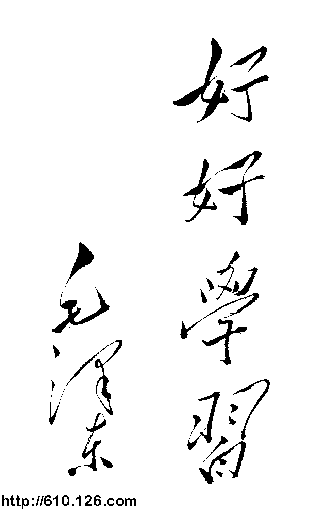 好好學習
毛澤东
http://610.126.com